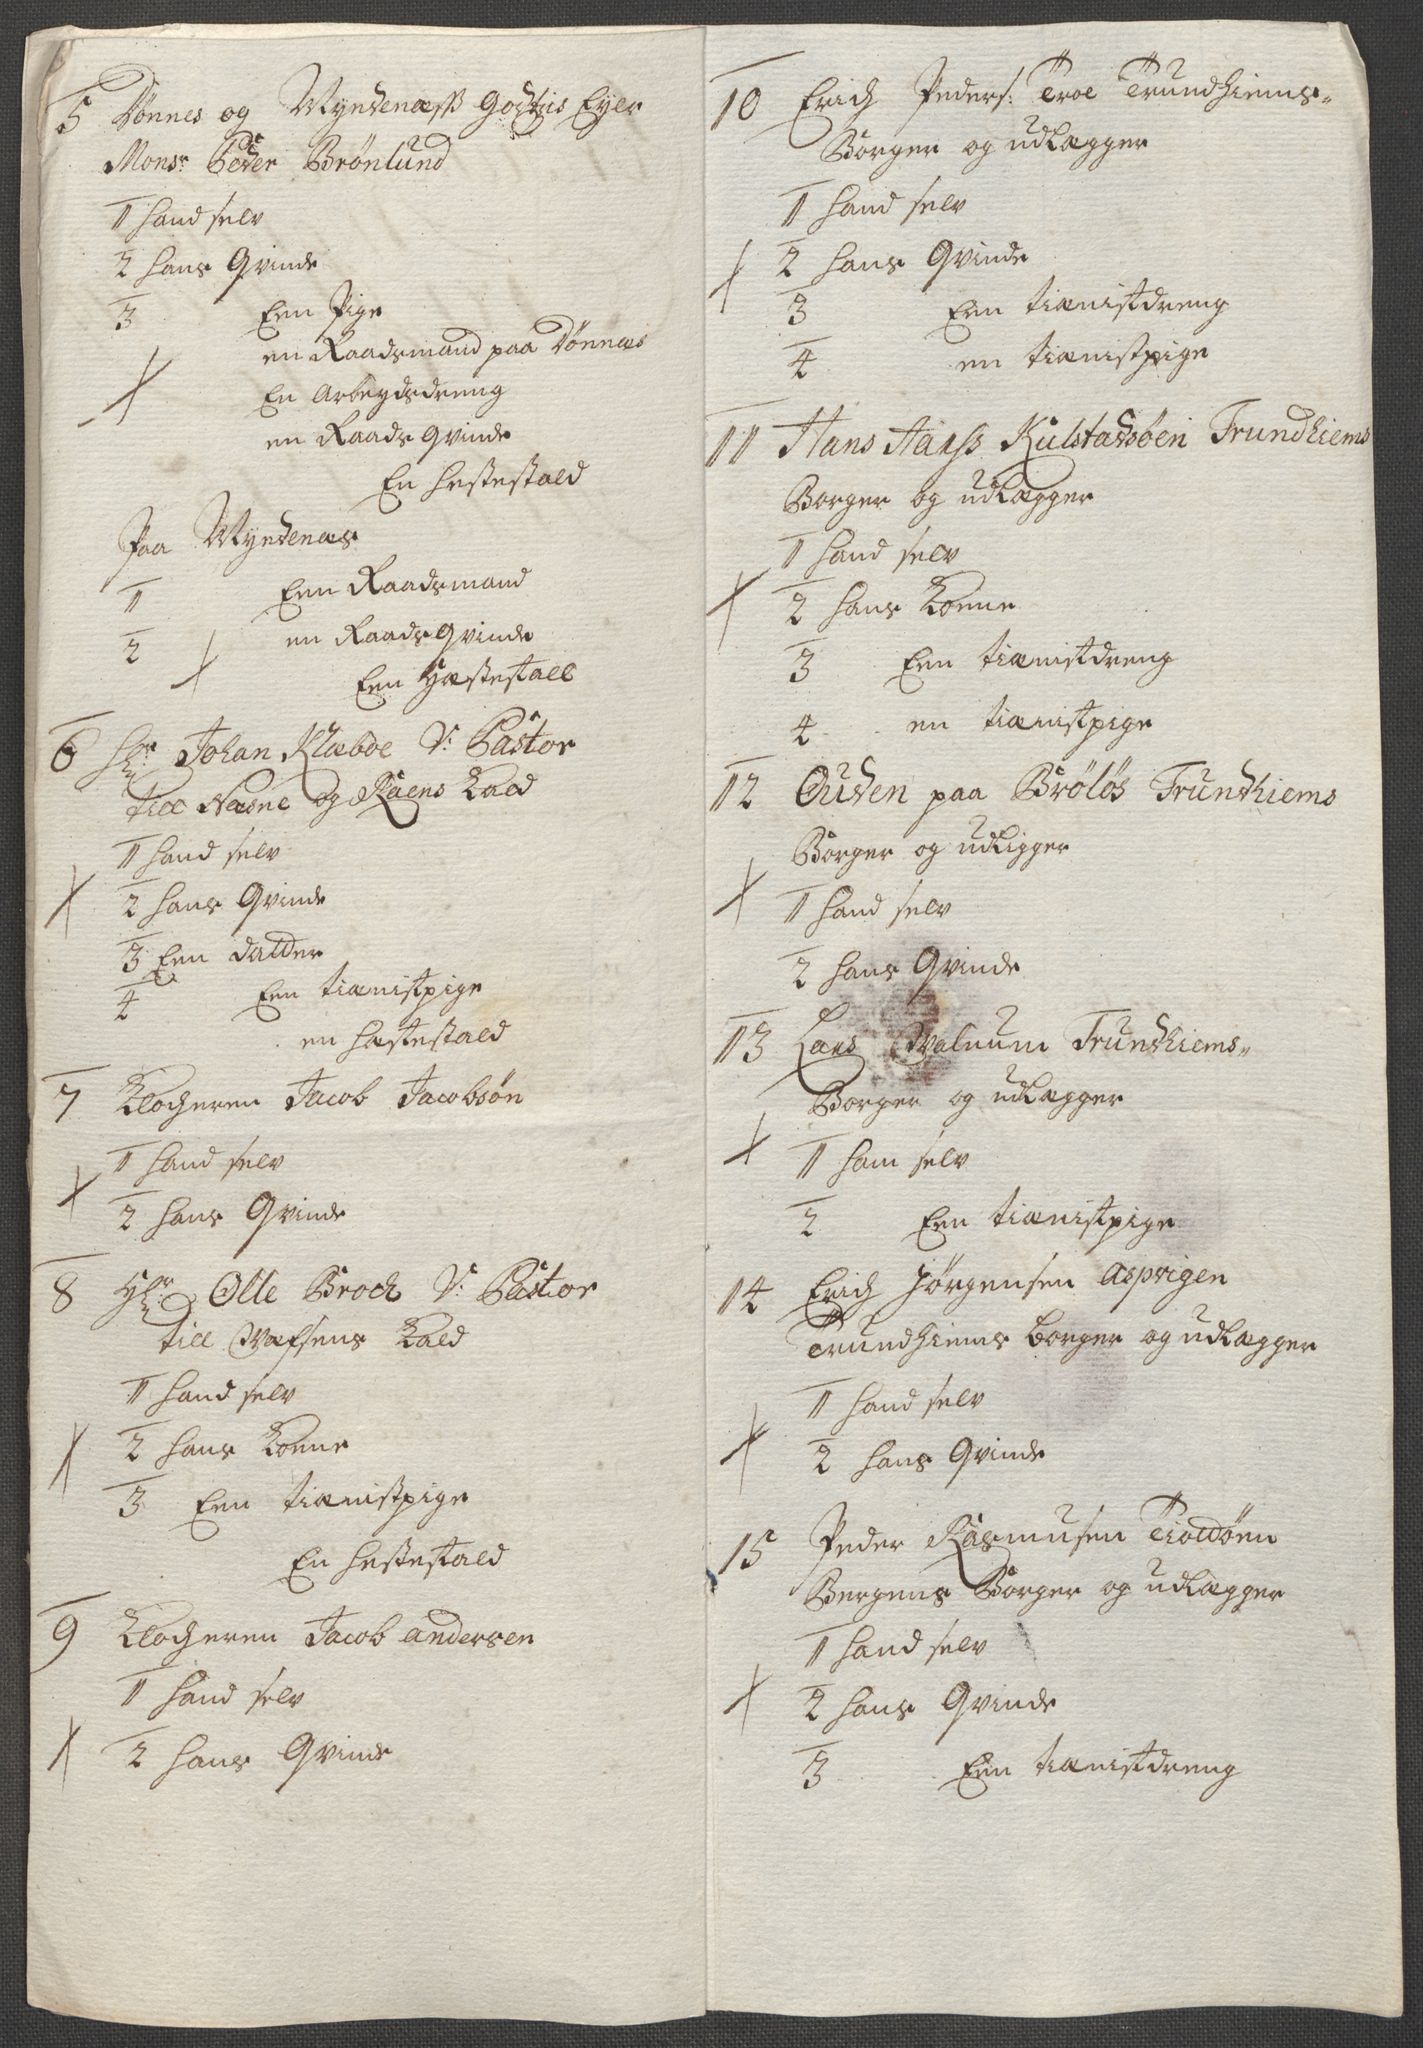 5 Dønnes og Wyndenæss Godtzis Eyer
Monsr: Peder Brønlund
1 Hand selv
2 hans Qvinde
3 Een Pige
en Raadsmand paa Dønnæs
En Arbeydsdreng
en Raads Qvinde
En Hestestald
Paa Wyndenæs
1 Een Raadsmand
2 en Raads Qvinde
Een Hæstestall
6 Hr: Johan Klæboe S: Pastor
till Næsne og Raens Kald
1 Hand selv
2 hans Qvinde
3 Een datter
4 Een tiænistpige
en hæstestald
7 Klocheren Jacob Jacobsøn
1 Hand selv
2 hans Qvinde
8 Hr: Olle Broch S: Pastor
till Wefsens Kald
1 Hand selv
2 hans Kone
3 Een tiænistpige
En hestestald
9 Klocheren Jacob andersen
1 Hand selv
2 hans Qvinde
10 Erich Peders: Troe Trundhiems-
Borger og udlægger
1 Hand selv
2 hans Qvinde
3 Een tiænistdreng
4 en tiænistpige
11 Hans Hanss Kulstadsøen Trundhiems
Borger og udlægger
1 Hand selv
2 hans Kone
3 Een tiænistdreng
4 en tiænistpige
12 Ouden paa Brøløs Trundhiems
Borger og udligger
1 Hand selv
2 hans Qvinde
13 Lars Walnum Trundhiems-
Borger og udlægger
1 Ham selv
2 Een tiænistpige
14 Erich Jørgensen Asprigen
Trundhiems borger og udlægger
1 Hand selv
2 hans Qvinde
15 Peder Rasmusen Tiottøen
Bergens Borger og udlægger
1 Hand selv
2 hans Qvinde
3 Een tiænistdreng